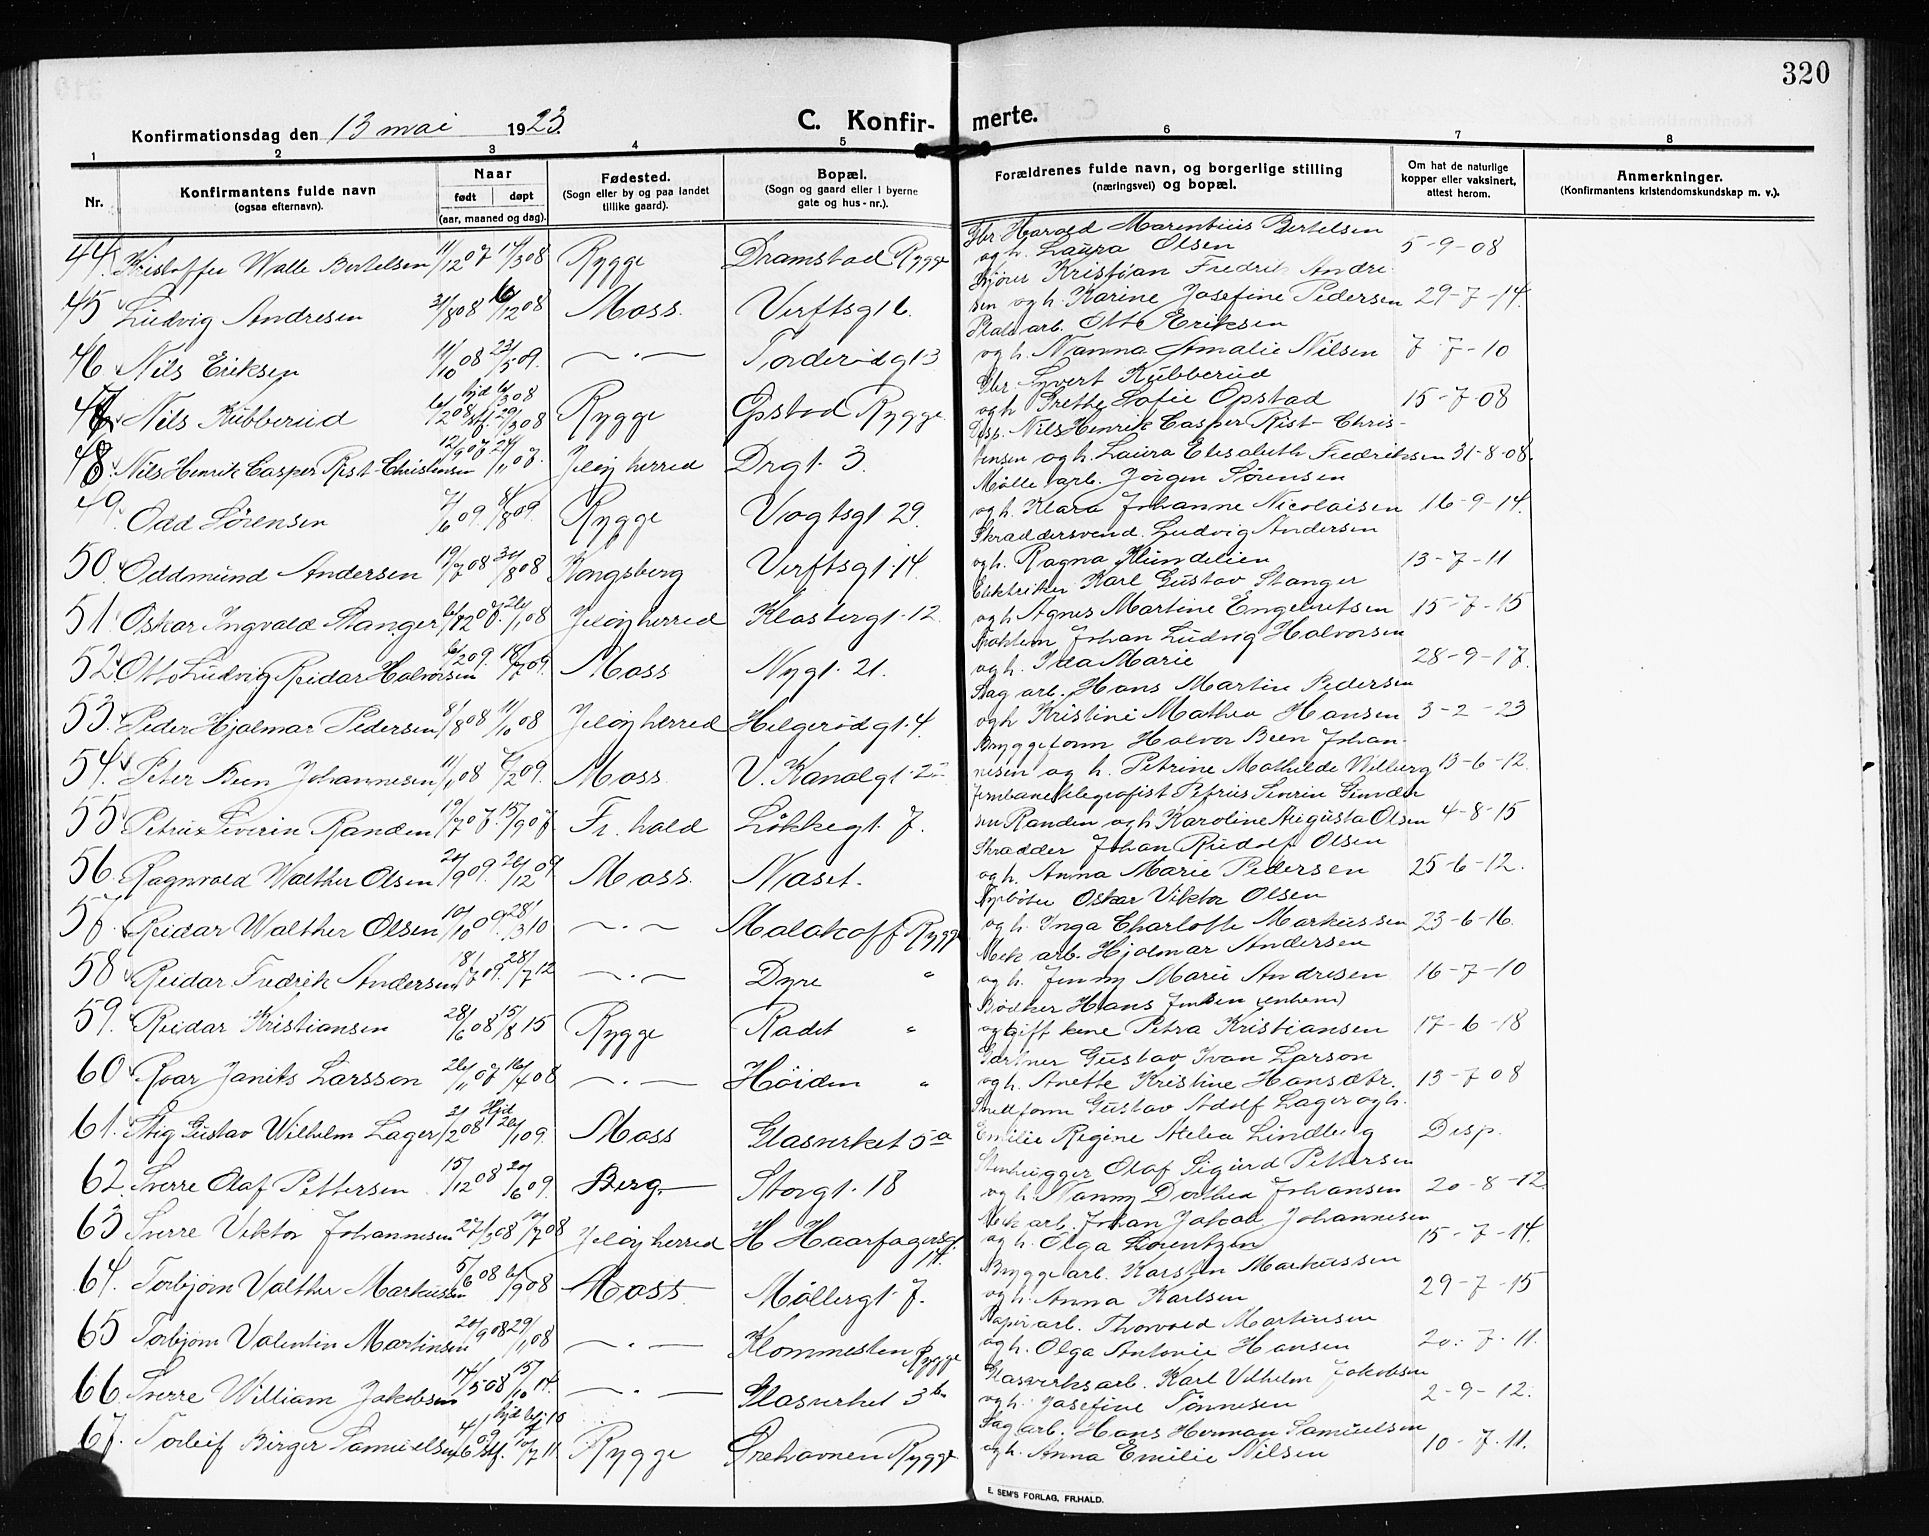 320
Konfirmationsdag den 13 mai 1923.
C. Konfir- merte.
1 2 3 4 5 6 7 8
Nr.
Konfirmantens fulde navn
(ogsaa efternavn).
Naar
født døpt
(aar, maaned og dag).
Fødested.
(Sogn eller by og paa landet
tillike gaard).
Bopæl.
(Sogn og gaard eller i byerne
gate og hus-nr.).
Forældrenes fulde navn, og borgerlige stilling
(næringsvei) og bopæl.
Om hat de naturlige
kopper eller vaksinert,
attest herom.
Anmerkninger.
(Konfirmantens kristendomskundskap m. v.).
Gbr Harald Marentius Bertelsen
44. Kristoffer Walle Bertelsen 11/12 07 17/3 08 Rygge Dramstad Rygge og h. Laura Olsen 5-9-08
Kjører Kristian Fredrik Andre-
45 Ludvig Andresen 31/8 08 16/12 08 Moss. Verftsgt 6. sen og h. Karine Josefine Pedersen 29-7-14.
arb. Otto Eriksen
46 Nils Eriksen 11/10 08 23/5 09. —·— Torderødgt 3 og h. Nanna Amalie Nilsen 7-7-10
Gbr Syvert Kubberud
47 Nils Kubberud 6/2 08 hjd 6/3 08 stf. 29/3 08 Rygge Opstad Rygge og h Grethe Sofie Opstad 15-7-08
Disp. Nils Henrik Casper Rist-Chris-
48. Nils Henrik Casper Rist-Christensen 12/9 07 24/11 07. Jeløy herred Drgt. 3. tensen og h. Laura Elisabeth Fredriksen 31-8-08.
Mølle arb. Jørgen Sørensen
49. Odd Sørensen 7/6 09. 8/8 09. Rygge Vogtsgt 29. og h. Klara Johanne Nicolaisen 16-9-14.
Skraddersvend. Ludvig Andersen
50. Oddmund Andersen 19/7 08 30/8 08 Kongsberg Verftsgt. 14. og h. Ragna Klundelien 13-7-11
Elektriker Karl Gustav Stanger
51. Oskar Ingvald Stanger 6/12 07. 26/1 08 Jeløy herred Klostergt. 12. og h Agnes Martine Engebretsen 15-7-15
Johan Ludvig Halvorsen
52. Otto Ludvig Reidar Halvorsen 6/2 09. 18/7 09. Moss Nygt. 21. og h. Ida Marie 28-9-17.
Sag arb. Hans Martin Pedersen
53. Peder Hjalmar Pedersen 8/8 08 11/10 08 Jeløy herred Helgerødgt. 4. og h Kristine Mathea Hansen 3-2-23
Bryggeform Halvor Been Johan-
54. Peter Been Johannesen 11/11 08 7/2 09. Moss. V. Kanalgt. 2 nesen og h. Petrine Mathilde Wilberg 13-6-12.
Jernbanetelegrafist Petrus Severin
55 Petrus Severin Randen 19/7 07. 15/9 07 Fr. hald Løkkegt. 7. Randen og h Karoline Augusta Olsen 4-8-15
Skrædder Johan Rudolf Olsen
56. Ragnvald Walther Olsen 20/9 09. 26/12 09. Moss. Næset. og h. Anna Marie Pedersen 25-6-12.
Oskar Viktor Olsen
57. Reidar Walther Olsen 10/10 09. 28/3 10 —·— Malakoff Rygge og h. Inga Charlotte Markussen 23-6-16.
Mek arb. Hjalmar Andersen
58 Reidar Fredrik Andersen 18/7 09. 28/7 12 —·— Dyre " og h. Jenny Marie Andresen 16-7-10
Bødker Hans Jensen (enkem)
59. Reidar Kristiansen 28/6 08 15/8 15 Rygge Radet " og gift kone Petra Kristiansen 17-6-18
Gartner Gustav Ivan Larson
60 Roar Janits Larsson 26/11 07 16/4 08 —·— Høiden " og h. Anette Kristine Hansdtr. 13-7-08
Gustav Adolf Lager og h.
61. Stig Gustav Wilhelm Lager 3/2 08 Hjd 26/1 09. Moss Glasverket 5a Emilie Regine Alelea Lindberg Disp.
Stenhugger Olaf Sigurd Pettersen
62. Sverre Olaf Pettersen 15/12 08 20/6 09. Berg. Storgt. 18 og h Nanny Dorthea Johansen 20-8-12.
Mek arb. Johan Jakob Johannesen
63 Sverre Viktor Johannesen 27/3 08 10/7 08 Jeløy herred H Haarfagersgt. 14. og h. Olga Lorentzen 15-7-14.
Brygge arb. Karsten Markussen
64. Torbjørn Valther Markussen 5/6 08 6/9 08 Moss. Møllergt. 7. og h. Anna Karlsen 29-7-15
Papir arb. Thorvald Martinsen
65 Torbjørn Valentin Martinsen 20/9 08 29/11 08 —·— Klommesten Rygge og h. Olga Antonie Hansen 20-7-11.
Glasverksarb. Karl Vilhelm Jakobsen
66. Sverre William Jakobsen 14/5 08 15/10 14. —·— Glasverket 3b og h. Josefine Tønnesen 2-9-12.
Sag arb. Hans Herman Samuelsen
67. Torleif Birger Samuelsen 4/6 09 hjd stf. 10/7 11 Rygge Ørehavnen Rygge og h. Anna Emilie Nilsen 10-7-11.
E. SEM'S FORLAG, FR.HALD.